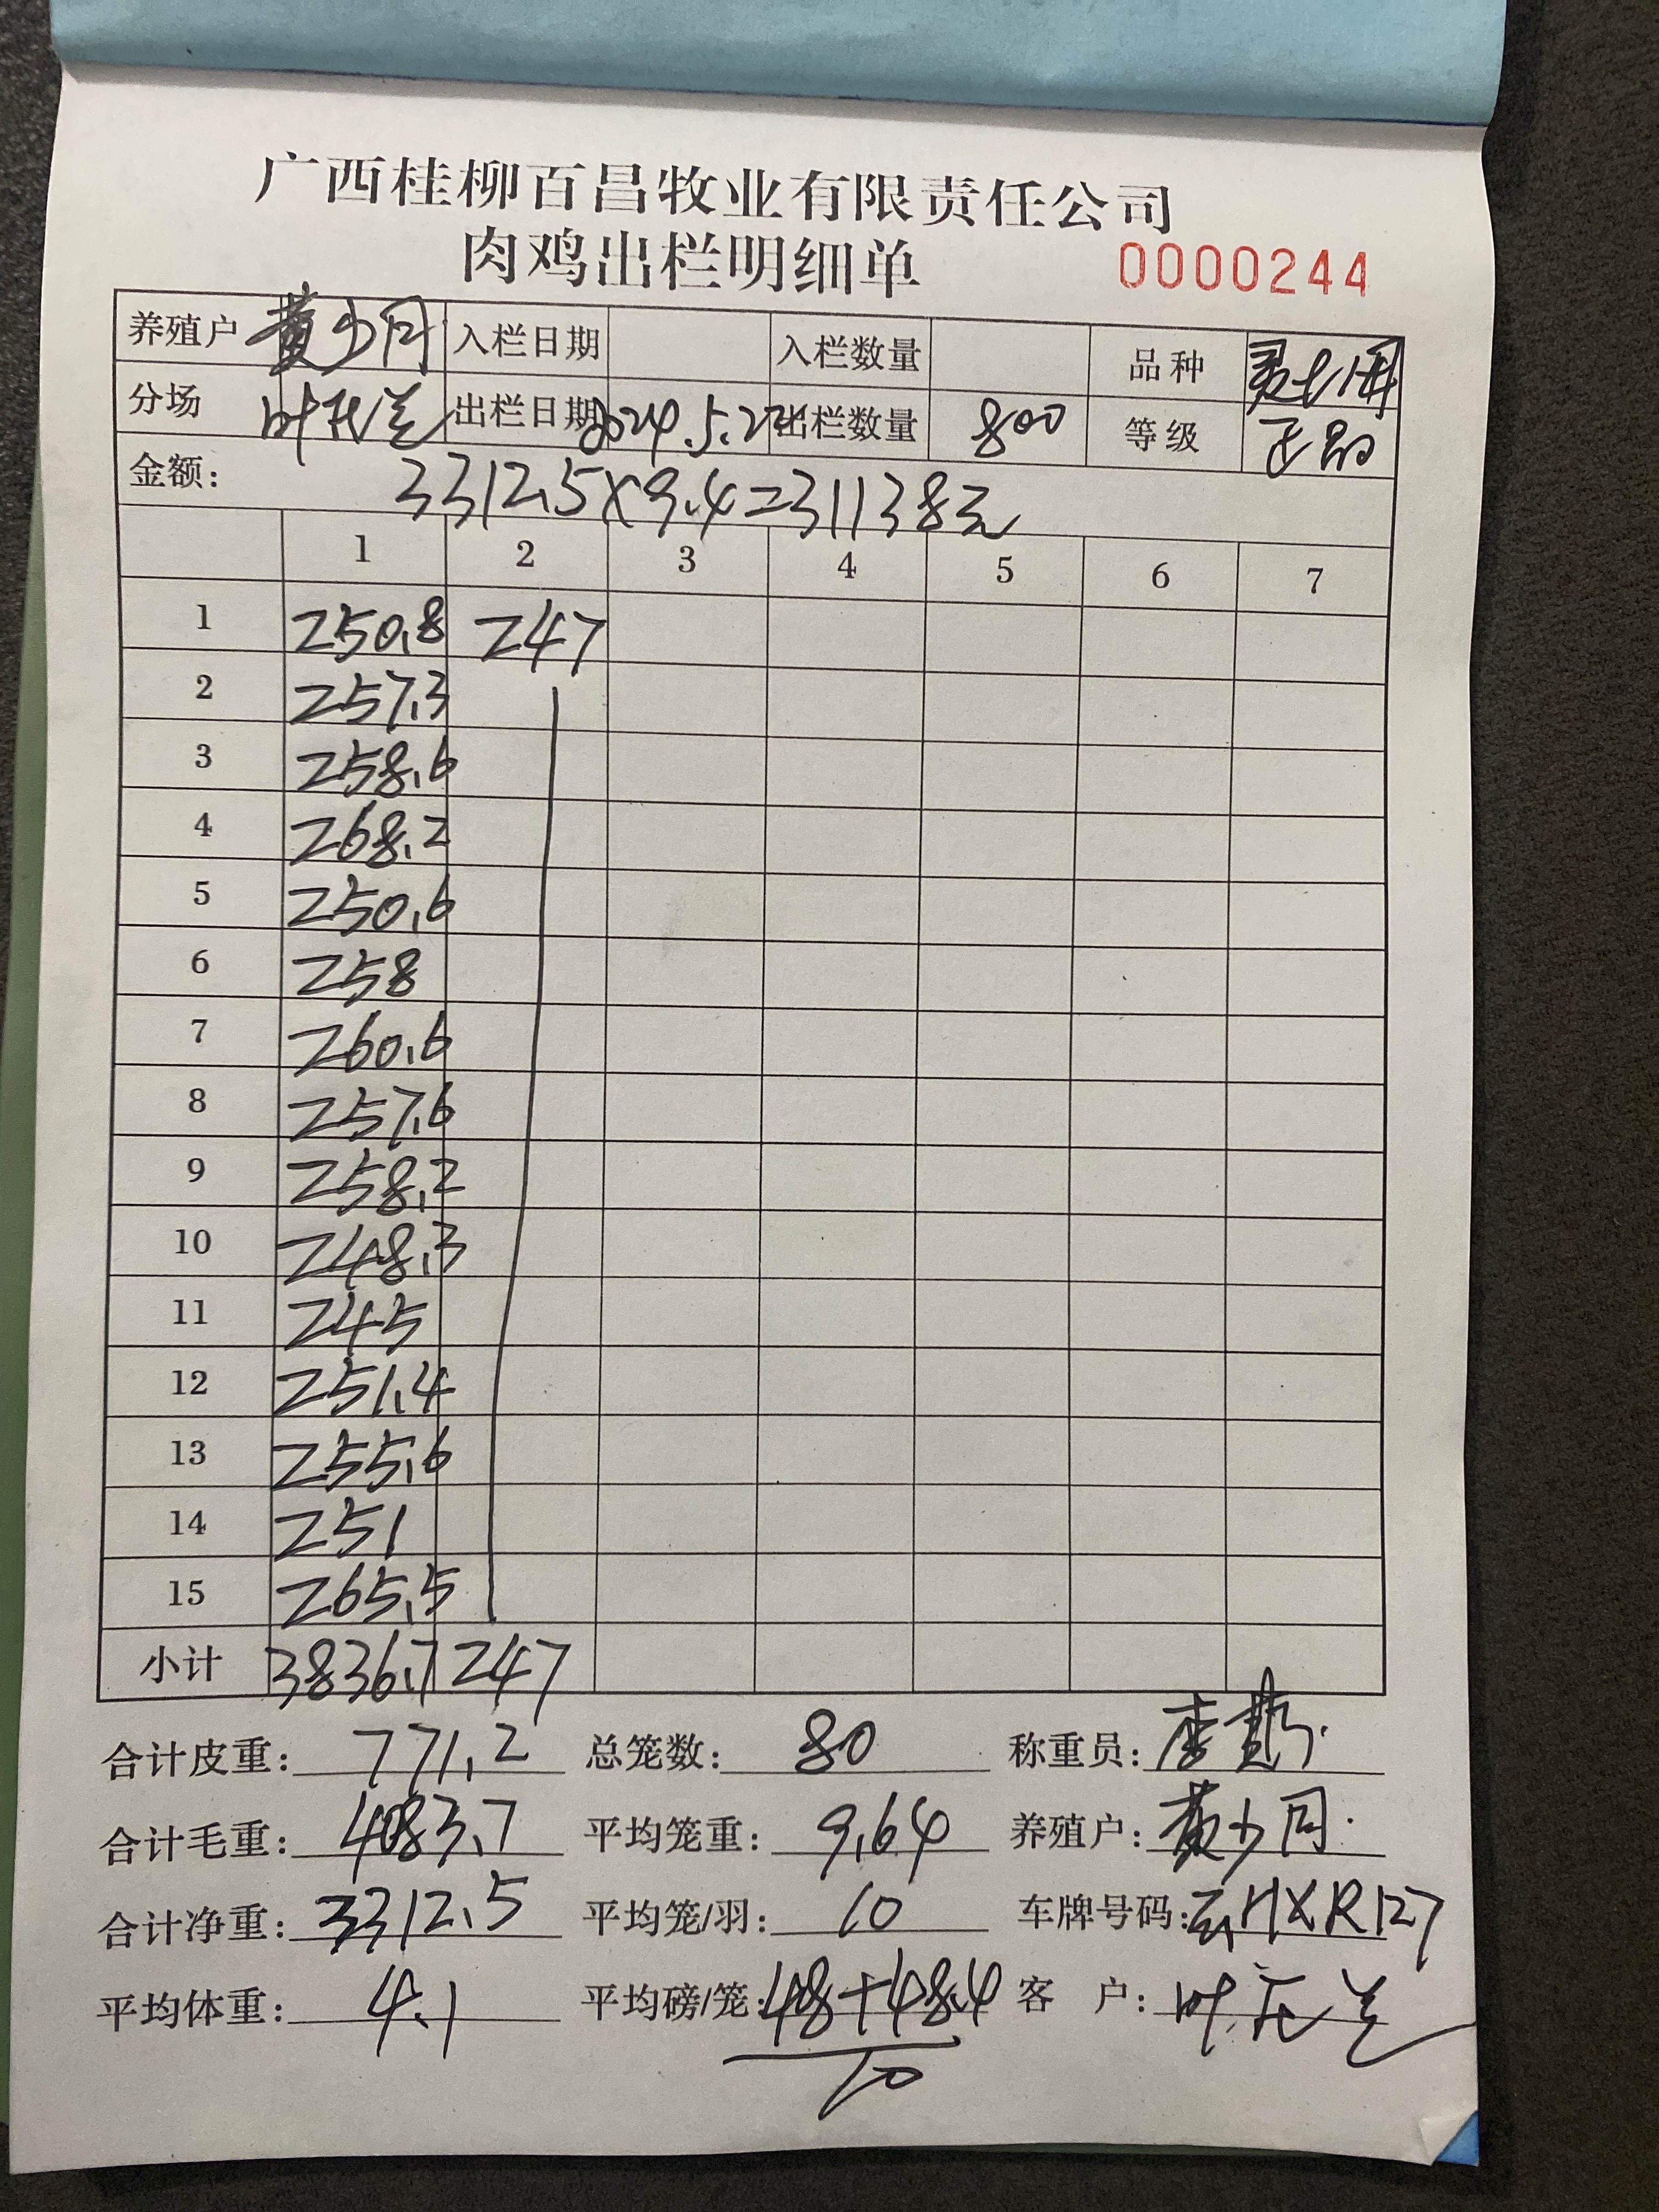 广西桂柳百昌牧业有限责任公司
肉鸡出栏明细单 0000244
养殖户 黄少同 入栏日期 入栏数量 品种
分场 叶 出栏日期 2024.5.22 出栏数量 800 等级 正品
金额: 3312.5×9.4=31138元
1 2 3 4 5 6 7
1 250.8 247
2 257.3
3 258.6
4 268.2
5 250.6
6 258
7 260.6
8 257.6
9 258.2
10 248.3
11 245
12 251.4
13 255.6
14 251
15 265.5
小计 3836.7 247
合计皮重: 771.2 总笼数: 80 称重员:
合计毛重: 4083.7 平均笼重: 9.64 养殖户: 黄少同
合计净重: 3312.5 平均笼/羽: 10 车牌号码: 云HXR127
平均体重: 4.1 平均磅/笼: 48+48.4 客 户: 叶
10